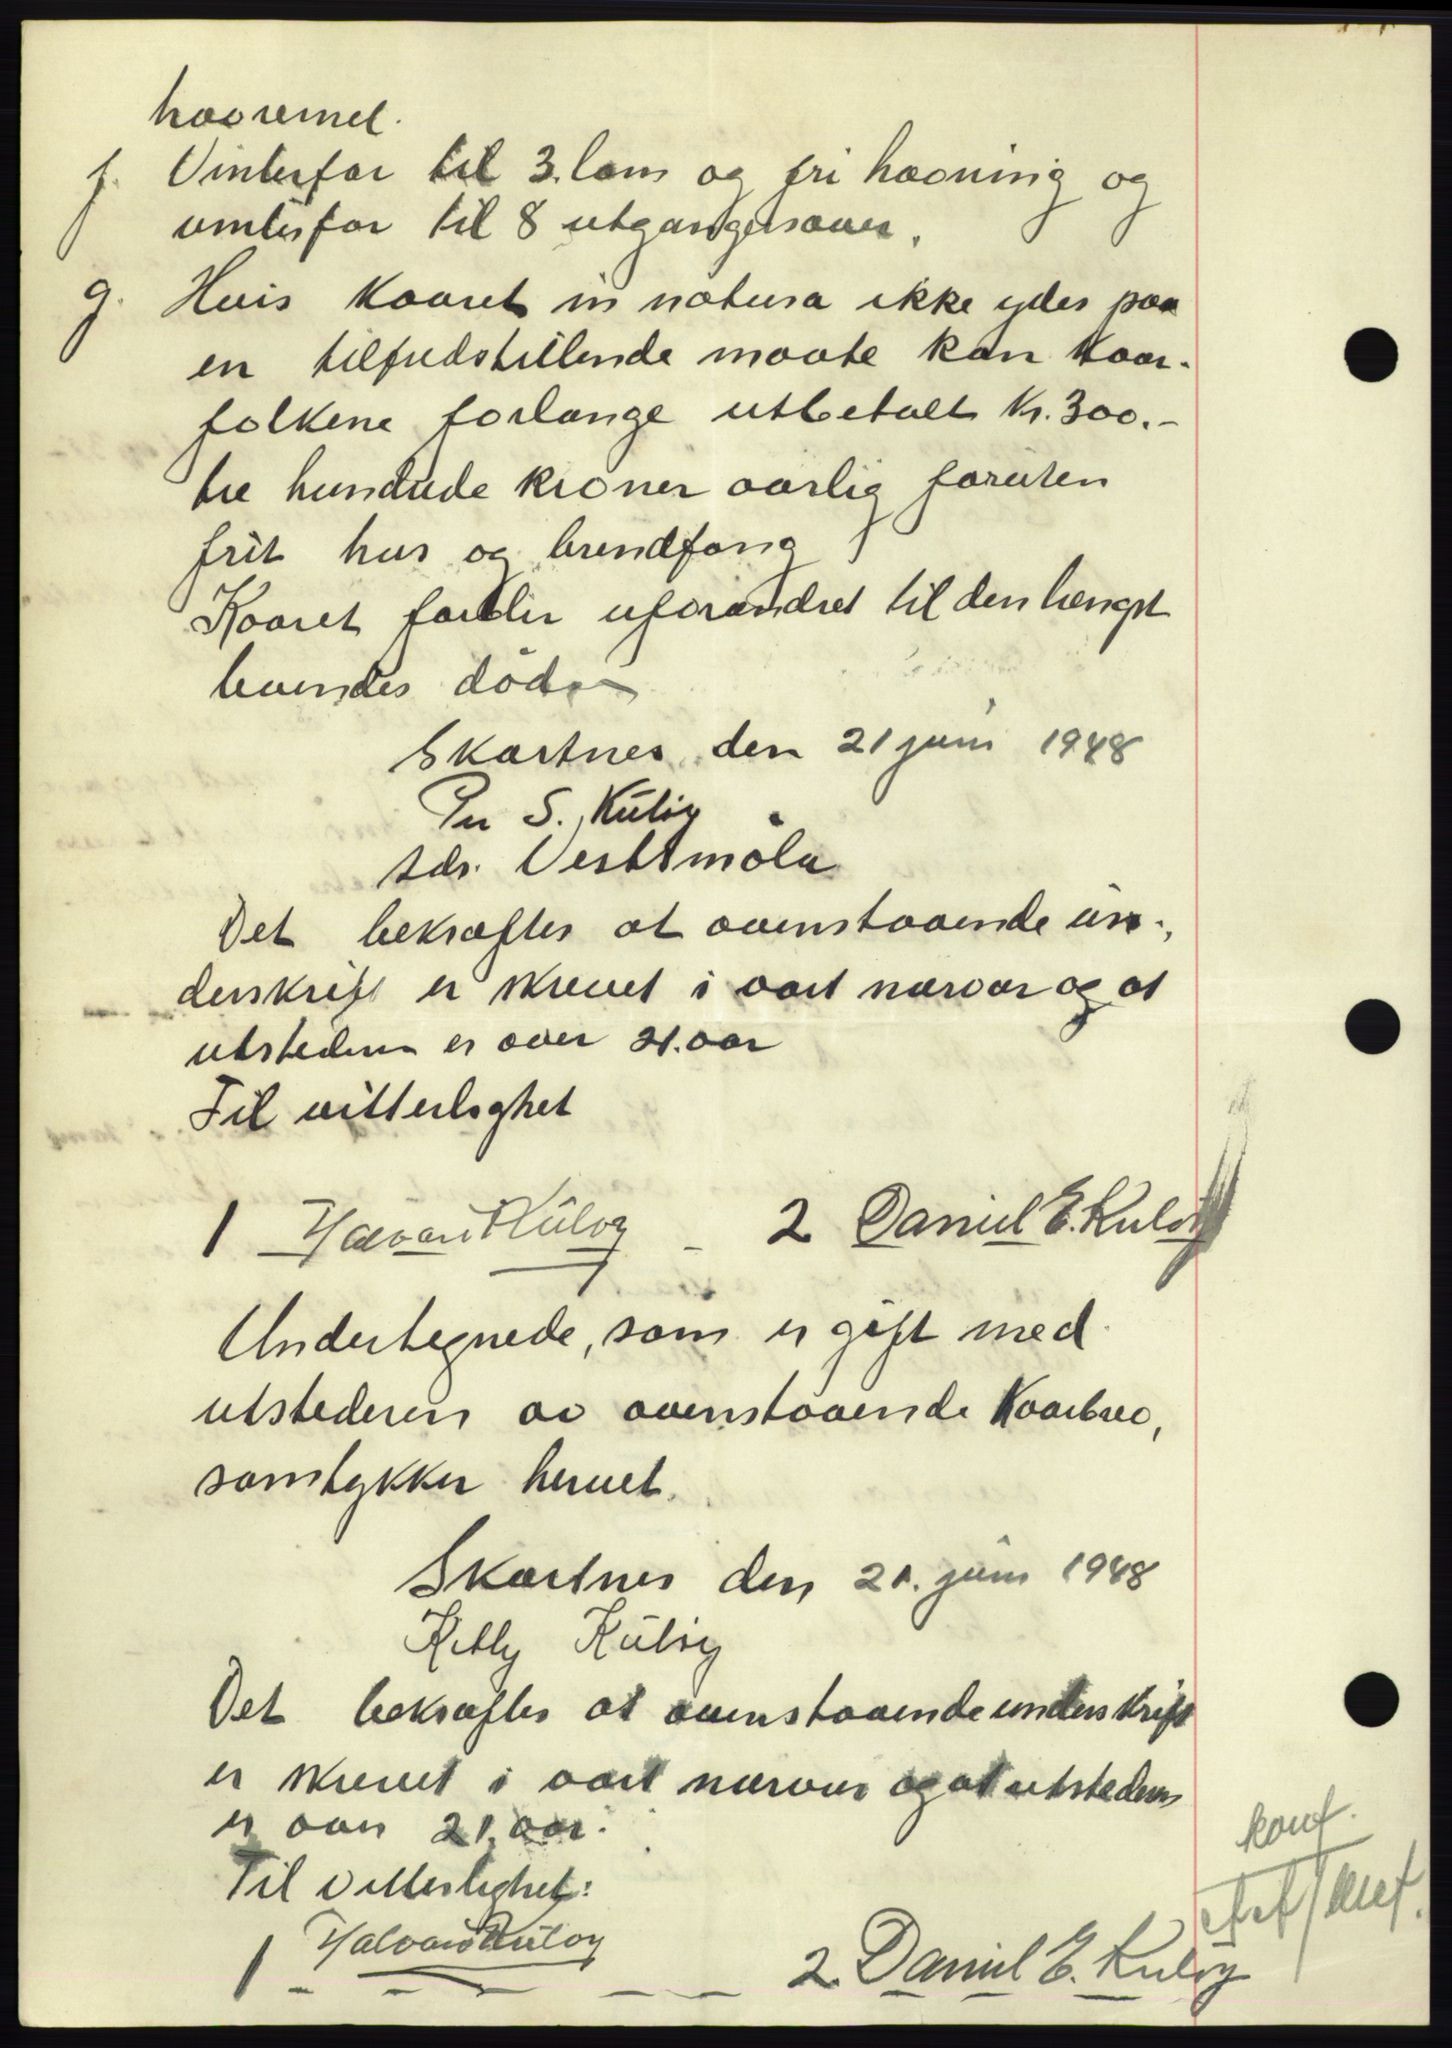 havremel.
f. Vinterfor til 3. lam og fri havning og
vinterfor til 8 utgangersauer.
g. Hvis kaaret in natura ikke ydes paa
en tilfredstillende maate kan kaar-
folkene forlange utbetalt Kr. 300.-
tre hundrede kroner aarlig foruten
frit hus og brendfang
Kaaret forblir uforandret til den længst
levendes död
Skartnes, den 21 juni 1948
Per S. Kulöy
sdr. Vestmöla
Det bekræftes at ovenstaaende un-
derskrift er skrevet i vart nærvær og at
utstederen er over 21. aar
Til vitterlighet
1 Halvard Kulöy - 2 Daniel E. Kulöy
Undertegnede, som er gift med
utstederen av ovenstaaende Kaarbrev,
samtykker hervet.
Skartnes den 21. juni 1948
Kitty Kulöy
Det bekræftes at ovenstaaende underskrift
er skrevet i vart nærvær og at utstederen
er over 21. aar.
Til Vitterlighet:
1 Halvard Kulöy 2. Daniel E. Kulöy
konf.